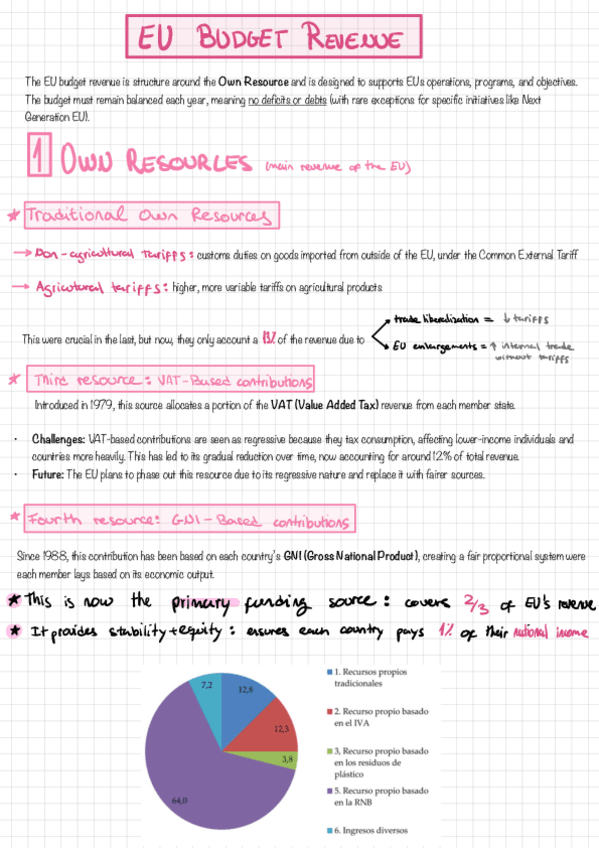 EU BUDGET REVENUE
The EU budget revenue is structure around the Own Resource and is designed to supports EUs operations, programs, and objectives.
The budget must remain balanced each year, meaning no deficits or debts (with rare exceptions for specific initiatives like Next
Generation EU).
1 OWN RESOURCES (main revenue of the EU)
★ Traditional Own Resources
→ Don-agricultural tariffs: customs duties on goods imported from outside of the EU, under the Common External Tariff
→ Agricultural tariffs: higher, more variable tariffs on agricultural products
trade liberalization = ↓ tariffs
This were crucial in the last, but now, they only account a 13% of the revenue due to
EU enlargements = ↑ internal trade
without tariffs
★ Third resource: VAT-Based contributions
Introduced in 1979, this source allocates a portion of the VAT (Value Added Tax) revenue from each member state.
• Challenges: VAT-based contributions are seen as regressive because they tax consumption, affecting lower-income individuals and
countries more heavily. This has led to its gradual reduction over time, now accounting for around 12% of total revenue.
• Future: The EU plans to phase out this resource due to its regressive nature and replace it with fairer sources.
★ Fourth resource: GNI-Based contributions
Since 1988, this contribution has been based on each country's GNI (Gross National Product), creating a fair proportional system were
each member lays based on its economic output.
★ This is now the primary funding source: covers 2/3 of EU's revenue
★ It provides stability+equity: ensures each country pays 1% of their national income
7,2
12,8
12,3
3,8
64,0
1. Recursos propios
tradicionales
2. Recurso propio basado
en el IVA
3, Recurso propio basado
en los residuos de
plástico
5. Recurso propio basado
en la RNB
6. Ingresos diversos